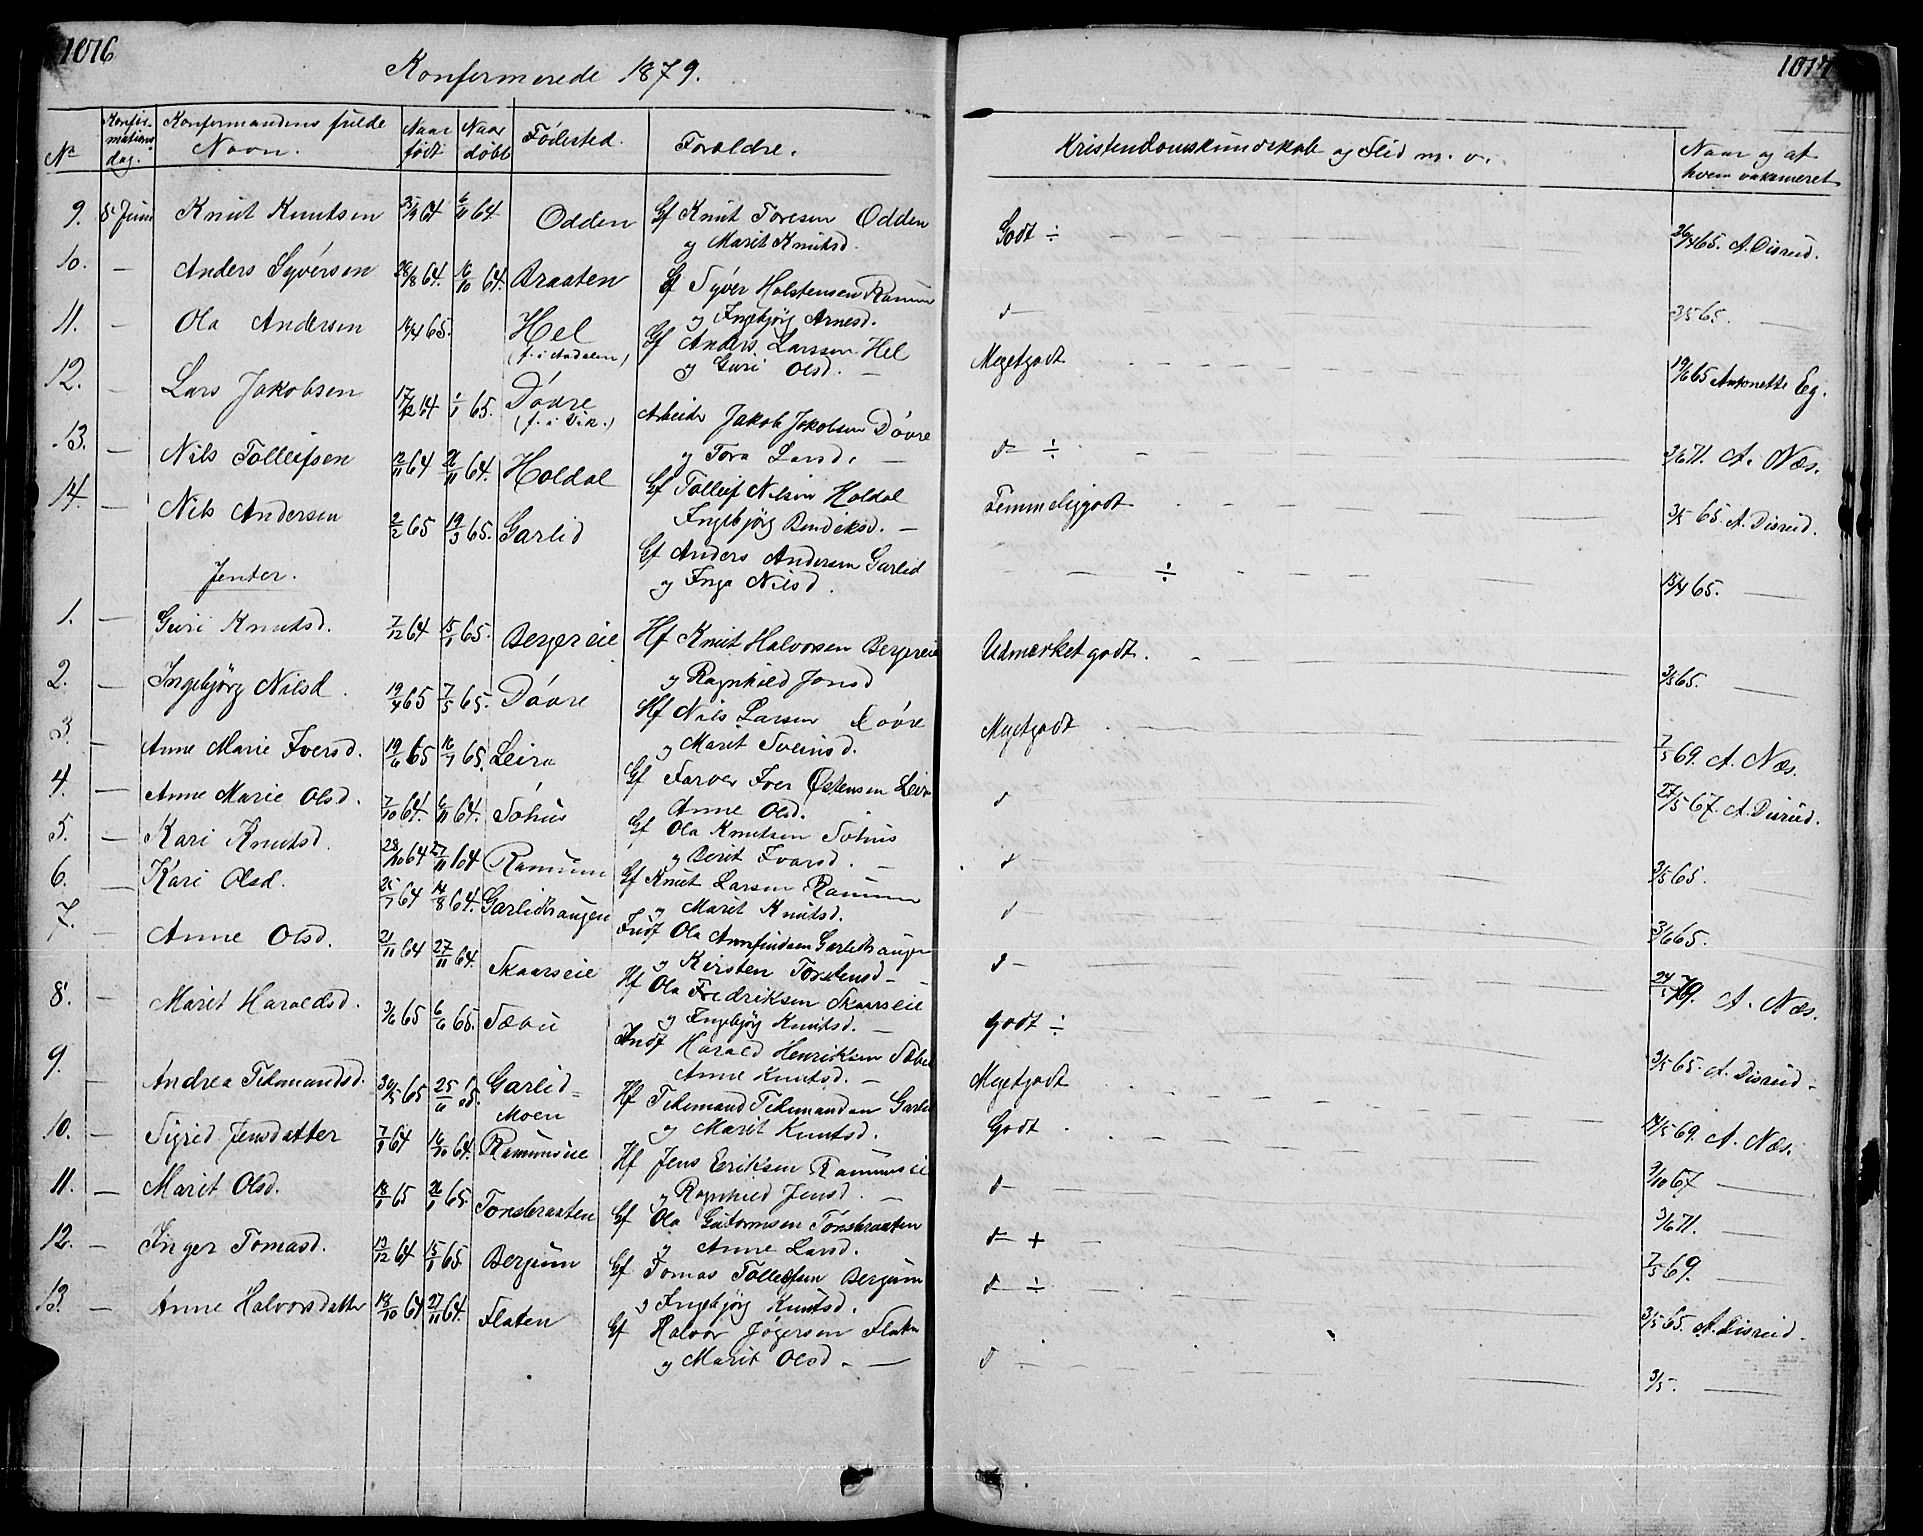 1016
Konfermerede 1879.
Nr. Konfirmations dag. Konfermandens fulde Navn. Naar født Naar døbt Fødested. Forældre.
9. 8 Juni Knut Knutsen 25/9 64 6/11 64 Odden Gf Knut Toresen Odden
og Marit Knutsd.
10. — Anders Syversen 28/8 64. 16/10 64. Braaten Gf Syver Holstensen Ramum
og Ingebjørg Arnesd.
11. — Ola Andersen 14/4 65. Hel (f. i Aadalen) Gf Anders Larssen Hel
og Guri Olsd. —
12. — Lars Jakobsen 17/12 64 1/1 65. Dövre (f. i Vik.) Arbeider Jakob Jakobsen Dövre
og Tora Larsd. —
13. — Nils Tolleifsen 12/11 64 26/11 64. Holdal Gf Tolleif Nilsen Holdal
Ingebjørg Bendiksd. —
14. — Nils Andersen 2/2 65 19/3 65. Garlid Gf Anders Andersen Garlid
og Inga Nilsd.
Jenter.
1. — Guri Knutsd. 7/12 64 15/1 65. Bergereie Hf Knut Halvorsen Bergereie
og Ragnhild Jonsd
2. — Ingebjörg Nilsd. 19/4 65 7/5 65. Dövre Hf Nils Larsen Dovre
og Marit Sveinsd.
3. — Anne Marie Iversd. 19/6 65 16/7 65. Leira Gf Farver Iver Østensen Leira
Anne Olsd.
4. — Anne Marie Olsd. 7/10 64. 6/11 64. Söhus Gf Ola Knutsen Söhus
og Berit Ivarsd. —
5. — Kari Knutsd. 28/10 64 27/11 64 Ramum Gf Knut Larsen Ramum
og Marit Knutsd.
6. — Kari Olsd. 25/7 64 14/8 64. Garlidhaugen Indf Ola Arnfindsen Garlidhaugen
og Kirsten Torstensd —
7. — Anne Olsd. 21/11 64 27/11 64. Skaarseie Hf Ola Fredriksen Skaarseie
og Ingebjörg Knutsd. —
8. — Marit Haraldsd. 3/6 65 6/6 65. Sæbu Indf Harald Henriksen Sæbu
Anne Knutsd. —
9. — Andrea Tidemandsd. 30/5 65 25/6 65. Garlid=Moen Hf Tidemand Tidemandsen Garlid
og Marit Knutsd.
10. — Sigrid Jensdatter 7/9 64 16/10 64. Ramumseie Hf Jens Eriksen Ramumseie
og Ragnhild Jensd. —
11. — Marit Olsd. 18/1 65 26/1 65. Tonsbraaten Gf Ola Guttormsen Tonsbraaten
og Anne Larsd.
12. — Inger Tomasd. 13/12 64 15/1 65. Bergum Gf Tomas Tollefsen Bergum
og Ingebjörg Knutsd.
13. — Anne Halvorsdatter 18/10 64 27/11 64. Flaten Gf Halvor Jögersen Flaten
og Marit Olsd. —
1017
Kristendomskundskab og Flid m. v. Naar og af hvem vaksineret
Godt ÷ 26/4 65. A. Disrud.
d— 3/5 65. —
Megetgodt 19/6 65 Antonette Eg.
d— ÷ 3/6 71. A. Næs.
Temmeliggodt 3/5 65. A. Disrud.
— — ÷ 15/4 65. —
Udmærketgodt. 3/5 65. —
Megetgodt 7/5 69. A. Næs.
d 27/5 67. A. Disrud.
d— 3/5 65. —
d 3/6 65.
d— 24/5 79. A. Næs.
godt ÷ 3/5 65. A. Disrud —
Megetgodt 14/5 69. A. Næs.
Godt 3/10 67 —
d— 3/6 71. —
d— + 7/5 69. —
d— ÷ 3/5 65. A. Disrud —
d — 3/5. —